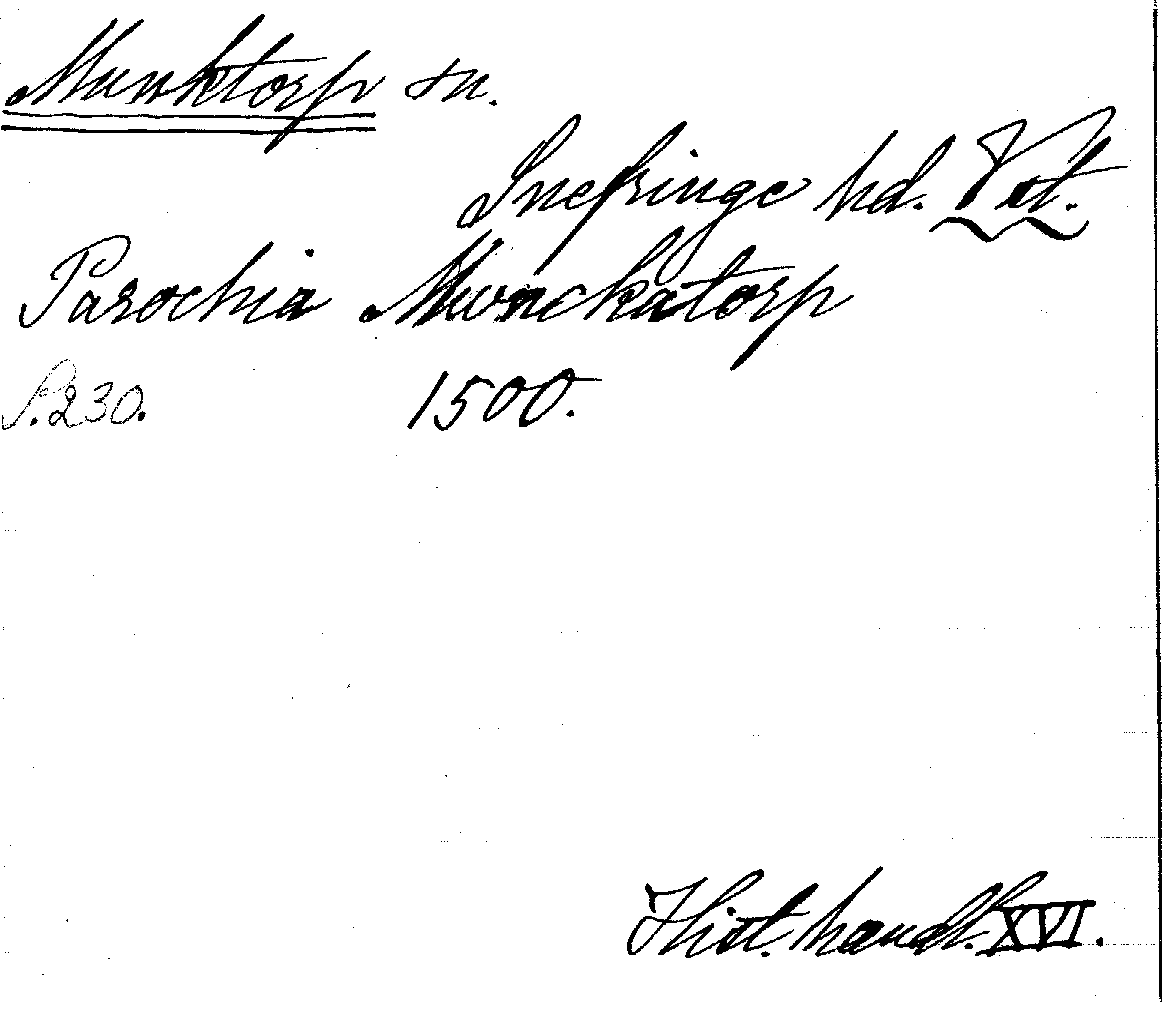 Munktorp sn.
Snefringe hd. Vst.
Parochia Munckatorp
S. 230. 1500.
Hist. handl. XVI.